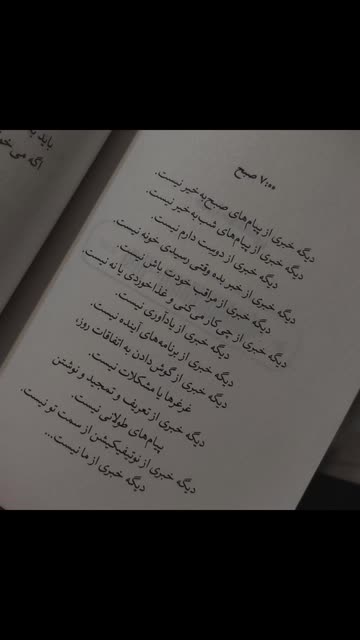 باید به
اگه می‌خو
۷:۰۰ صبح
دیگه خبری از پیام‌های صبح به خیر نیست.
دیگه خبری از پیام‌های شب به خیر نیست.
دیگه خبری از دوست دارم نیست.
دیگه خبری از خبر بده وقتی رسیدی خونه نیست.
دیگه خبری از مراقب خودت باش نیست.
دیگه خبری از چی کار می‌کنی و غذا خوردی یا نه نیست.
دیگه خبری از یادآوری نیست.
دیگه خبری از برنامه‌های آینده نیست.
دیگه خبری از گوش دادن به اتفاقات روز،
غرغرها یا مشکلات نیست.
دیگه خبری از تعریف و تمجید و نوشتن
پیام‌های طولانی نیست.
دیگه خبری از نوتیفیکیشن از سمت تو نیست.
دیگه خبری از ما نیست...